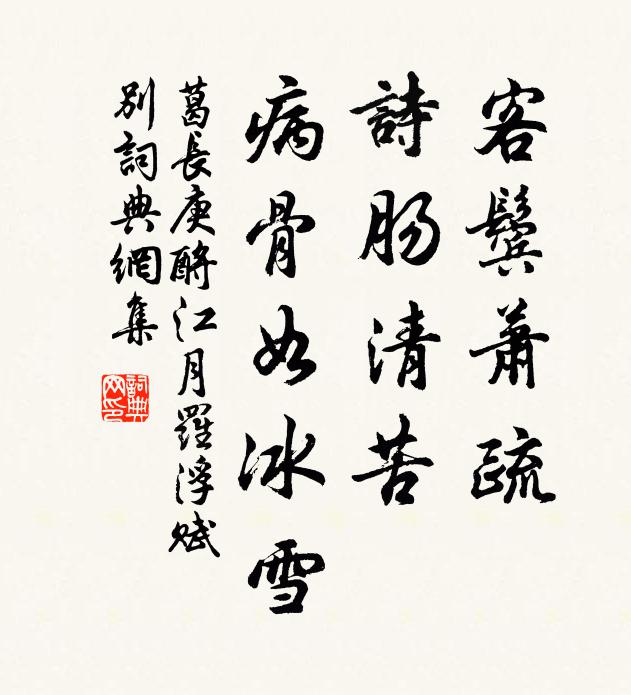 客鬢蕭疏
詩肠清苦
病骨如冰雪
葛長庚酹江月羅浮賦
别詞典網集
詞典网印